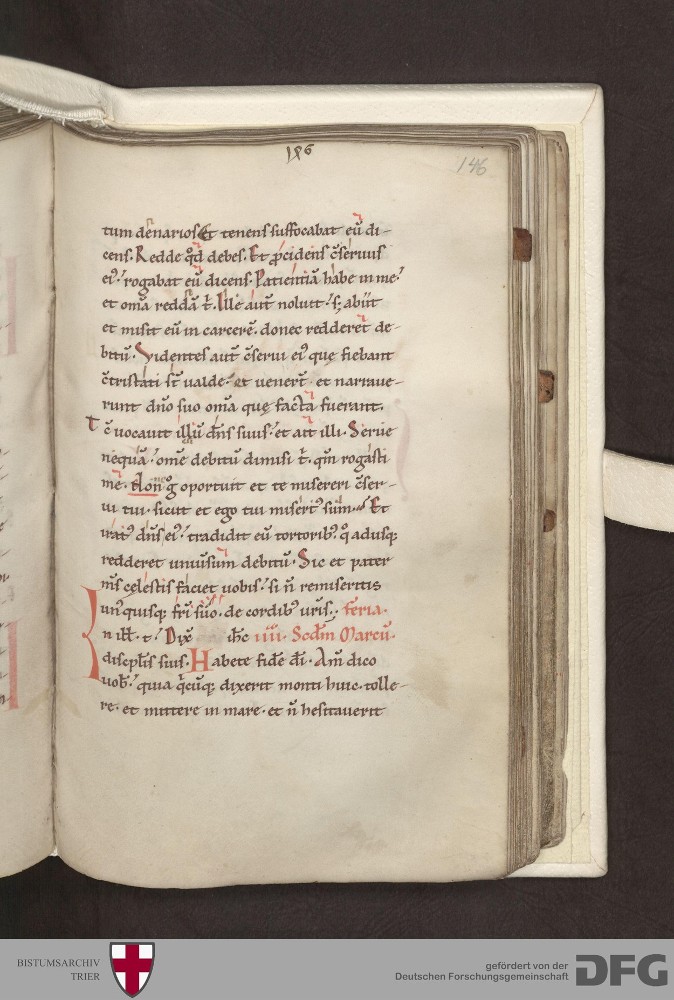 186
146
tum denarios. Et tenens suffocabat eū di-
cens. Redde qd̄ debes. Et ꝓcidens c̄seruus
ei᷒ rogabat eū dicens. Patientiā habe in me
et om̄a reddā t̄. Ille aut̄ noluit. sꝫ abiit
et misit eū in carcerē. donec redderet de-
bitū. Videntes aut̄ c̄serui ei᷒ que fiebant
c̄tristati st̄ valde. et venert̄. et narraue-
runt dn̄o suo om̄a quę facta fuerant.
T c̄ vocauit illū dn̄s suus. et ait illi. Serue
nequā. om̄e debitū dimisi t̄. qm̄ rogasti
me. Non g̊ oportuit et te misereri c̄ser-
ui tui. sicut et ego tui misert᷒ sum. Et
irat᷒ dn̄s ei᷒. tradidit eū tortorib᷒. q̊adusqꝫ
redderet uniuersum debitū. Sic et pater
ms̄ celestis faciet uobis. si n̄ remiseritis
unusquisqꝫ fri̅ suo. de cordib᷒ uris̄. Feria.
n ill̄. t̄. Dix̄ ih̄c iiii. Scdm̄ Marcū.
discipl̄is suis. Habete fidē dī. Am̄ dico
uob̄. quia q̄cūqꝫ dixerit monti huic. tolle-
re. et mittere in mare. et n̄ hesitauerit
BISTUMSARCHIV
TRIER
gefördert von der
Deutschen Forschungsgemeinschaft
DFG